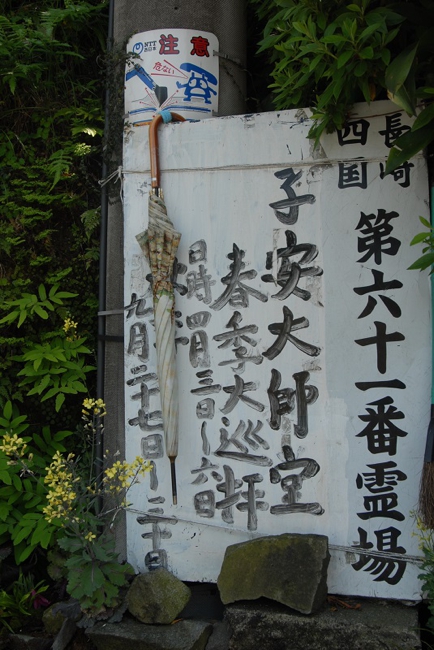 NTT西日本
注意
危ない
長崎
四国
第六十一番霊場
子安大師堂
春季大巡拝
日時四月三日〜六日
九月二十七日〜三十日